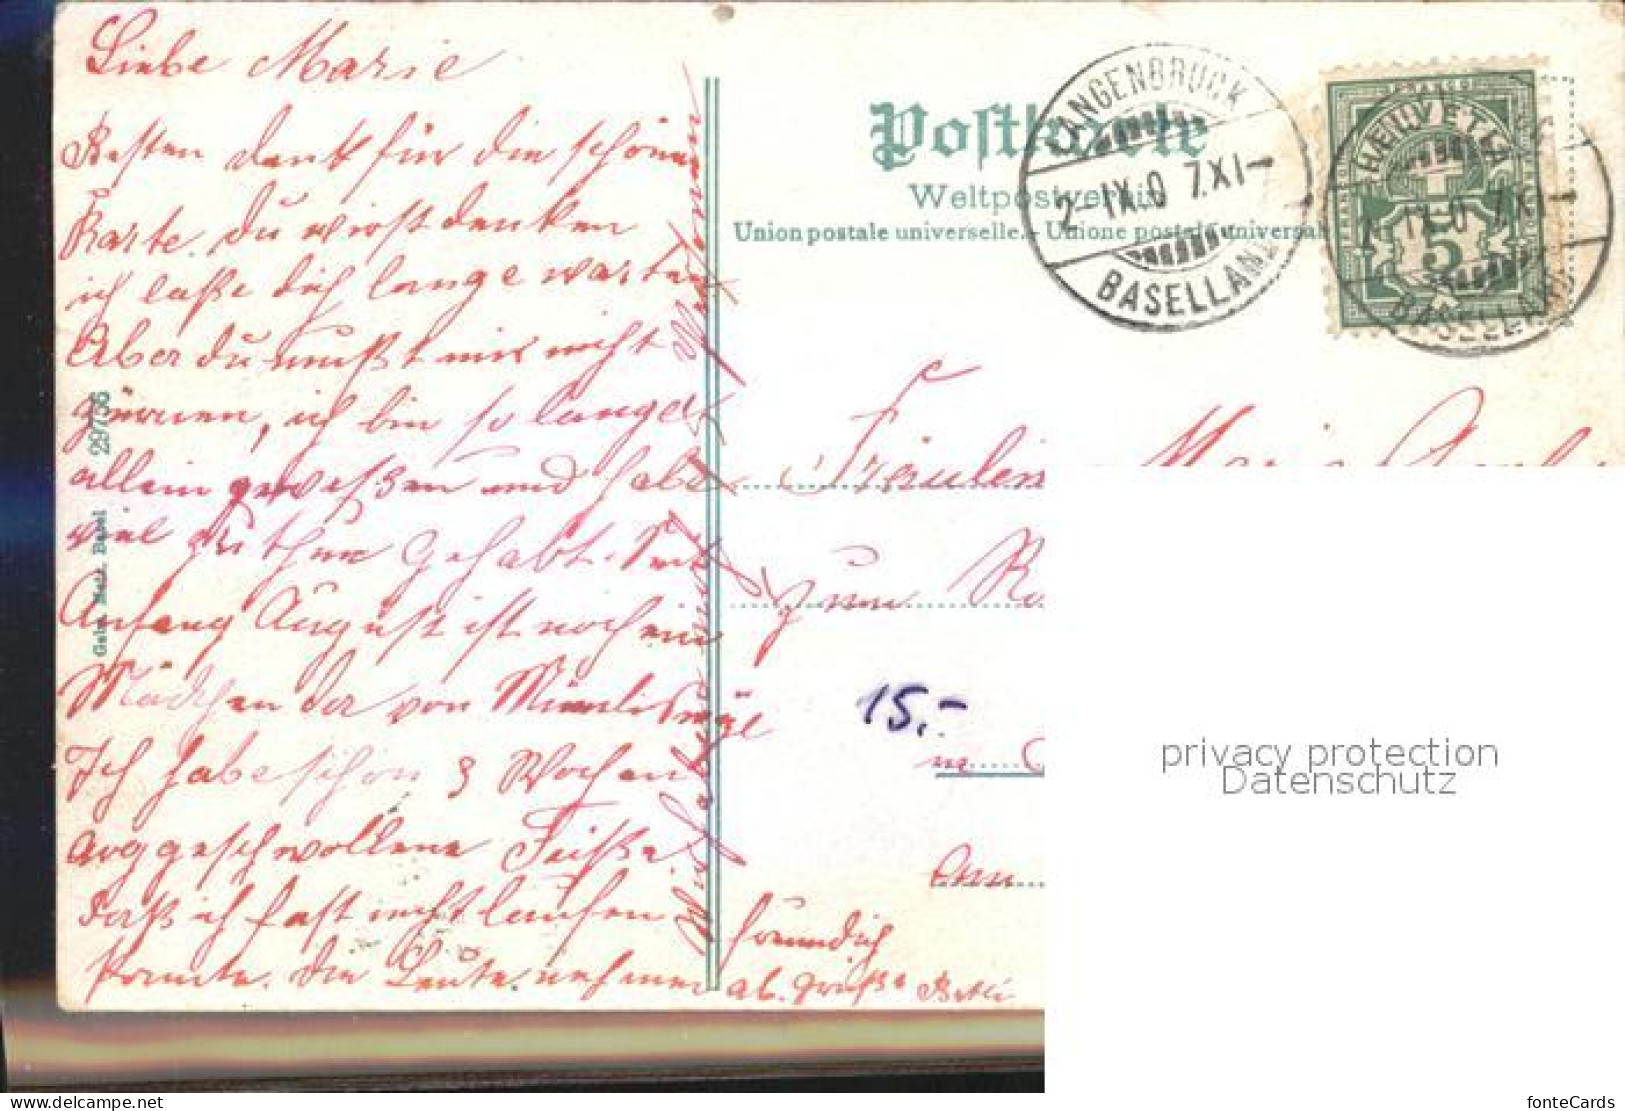 Liebe Marie
Besten dank für die schönen
Karte. du wirst denken
ich laße dich lange warten
Aber du mußt mir nicht
zürnen, ich bin so lange
allein geweßen und habe
viel zu thun Gehabt. Seit
Anfang August ist noch ein
Mädchen der von Mümliswyl
Ich habe schon 3 Wochen
arg geschwollene Füße
daß ich fast nicht laufen
konnte. die Leute nehmen ab. Grüße Betti
freundlich
Wir haben
Gebr. Metz, Basel 29756
Postkarte
Weltpostverein
Union postale universelle. - Unione postale universal
LANGENBRUCK
2-IX.07.XI-
BASELLAND
FRANCO
HELVETIA
5
IX.07.XI-
BASELLAND
Fräulein Marie
zum Ro
15.-
in
privacy protection
Datenschutz
www.delcampe.net
fonteCards